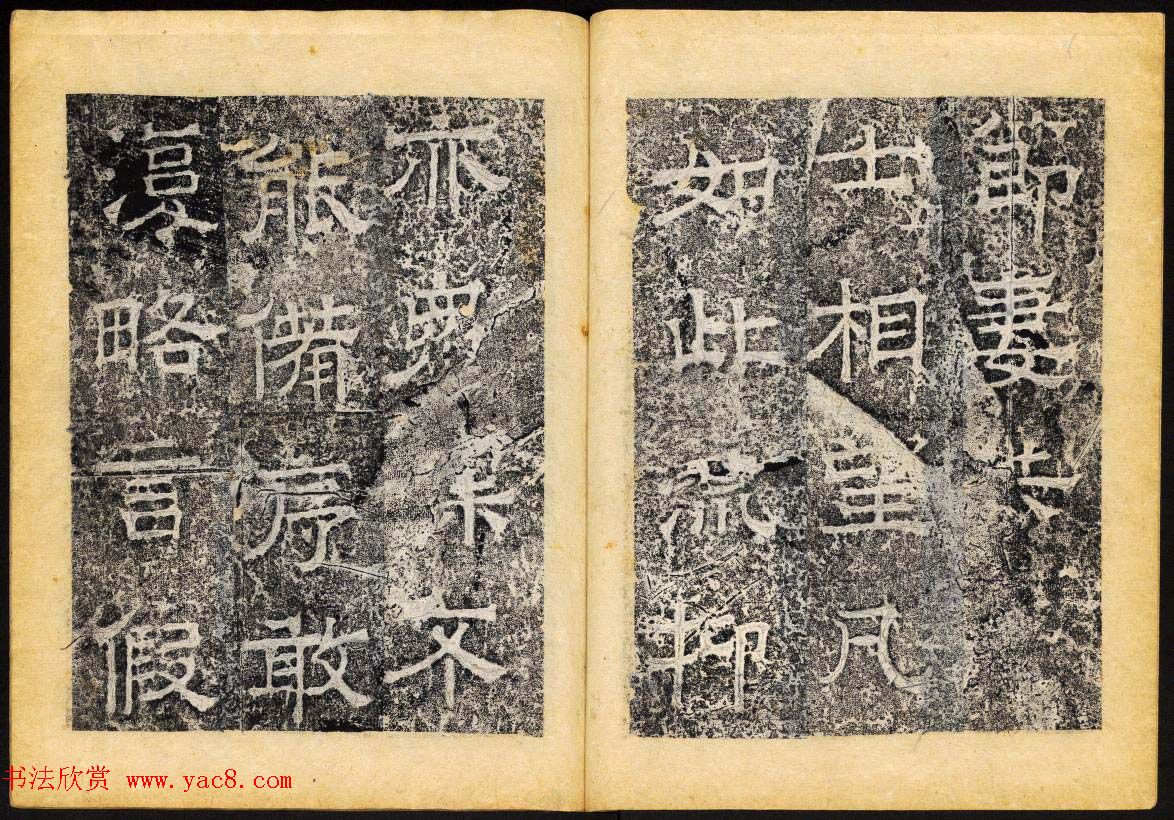 節妻
士相望凡
如此流抑
亦桀不
能備序敢
略言假
书法欣赏 www.yac8.com